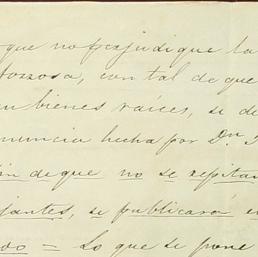 que no perjudique la
tozosa, con tal de que
en bienes raíces, se de
nuncia hecha por Dn
in de que no se repitan
jantes, se publicará e
do = Lo que se pone